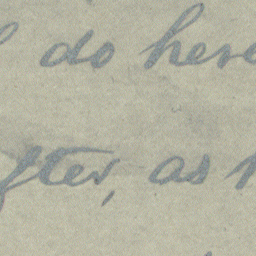 do here
fter, as